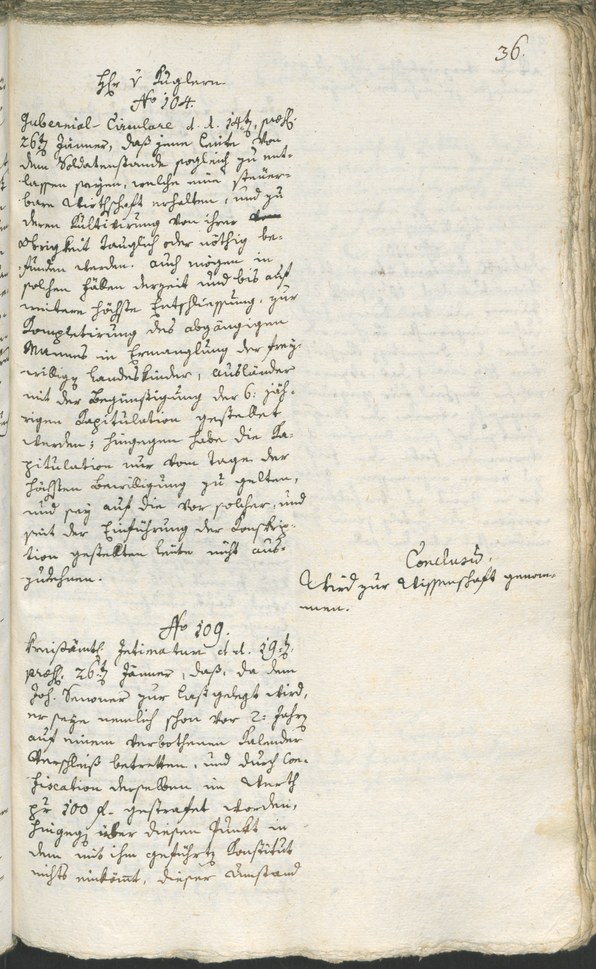 36.
Hr v Kuglern
No 104.
Gubernial-Circulare d. d. 14t, præs.
26t Jänner, daß jene Leute von
dem Soldatenstande sogleich zu ent-
lassen seyen, welche eine steuer-
bare Wirthschaft erhalten, und zu
deren Kultivirung von ihrer
Obrigkeit tauglich oder nöthig be-
funden werden. Auch mögen in
solchen Fällen derzeit und bis auf
weitere höchste Entschliessung, zur
Kompletirung des abgängigen
Mannes in Ermanglung der frey-
willig Landeskinder, Ausländer
mit der Begünstigung der 6. jäh-
rigen Kapitulation gestellet
werden; hingegen habe die Ka-
pitulation nur vom Tage der
höchsten Bewilligung zu gelten,
und sey auf die vor solcher, und
seit der Einführung der Konskrip-
tion gestellten Leute nicht aus-
zudehnen.
Conclusũ.
Wird zur Wissenschaft genom-
men.
No 109.
Kreisämtl. Intimatum d. d. 19t,
præs. 26t Jänner, daß, da dem
Joh. Senoner zur Last gelegt wird,
er seye nemlich schon vor 2. Jahr
auf einem verbothenen Kalender
Verschleiß betretten, und durch Con-
fiscation derselben im Werth
pr 100 f. gestrafet worden,
hingeg über diesen Punkt in
dem mit ihm geführt Konstitut
nichts einkömt, dieser Umstand